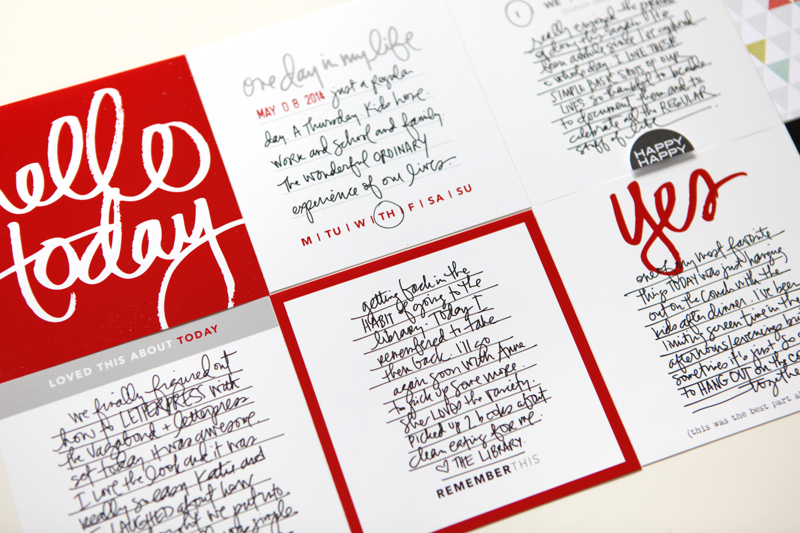 hello
today
one day in my life
MAY 08 2014 just a regular
day. A Thursday. Kids home.
Work and School and family.
The wonderful ORDINARY
experience of our lives.
M | TU | W | TH | F | SA | SU
1
WE
really enjoyed the
a whole day. I LOVE THESE
SIMPLE BASIC SHOTS of our
LIVES. So thankful to be able
to document them and to
celebrate all the REGULAR
stuff of life.
HAPPY
HAPPY
yes
one of my most favorite
things TODAY was just hanging
out on the couch with the
kids after dinner. I've been
limiting screen time in the
afternoons/evenings but
sometimes it's just so
to HANG OUT on the
together
(this was the best part
LOVED THIS ABOUT TODAY
we finally figured out
how to LETTERPRESS with
the Vagabond + letterpress
set today. It was awesome.
I love the look and it was
really so easy. Katie and
I LAUGHED about how
we put into
simple
getting back in the
HABIT of going to the
library. Today I
remembered to take
them back. I'll go
again soon with Anna
to pick up some more.
She LOVES the variety.
Picked up 2 books about
clean eating for me.
♡ THE LIBRARY.
REMEMBER THIS